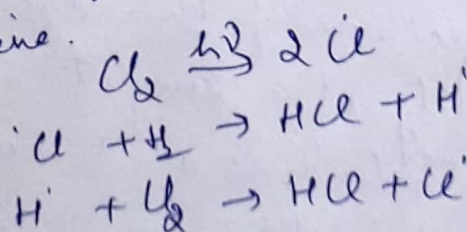 ine.
Cl₂ hν→ 2 Cl˙
˙Cl + H₂ → HCl + H˙
H˙ + Cl₂ → HCl + Cl˙